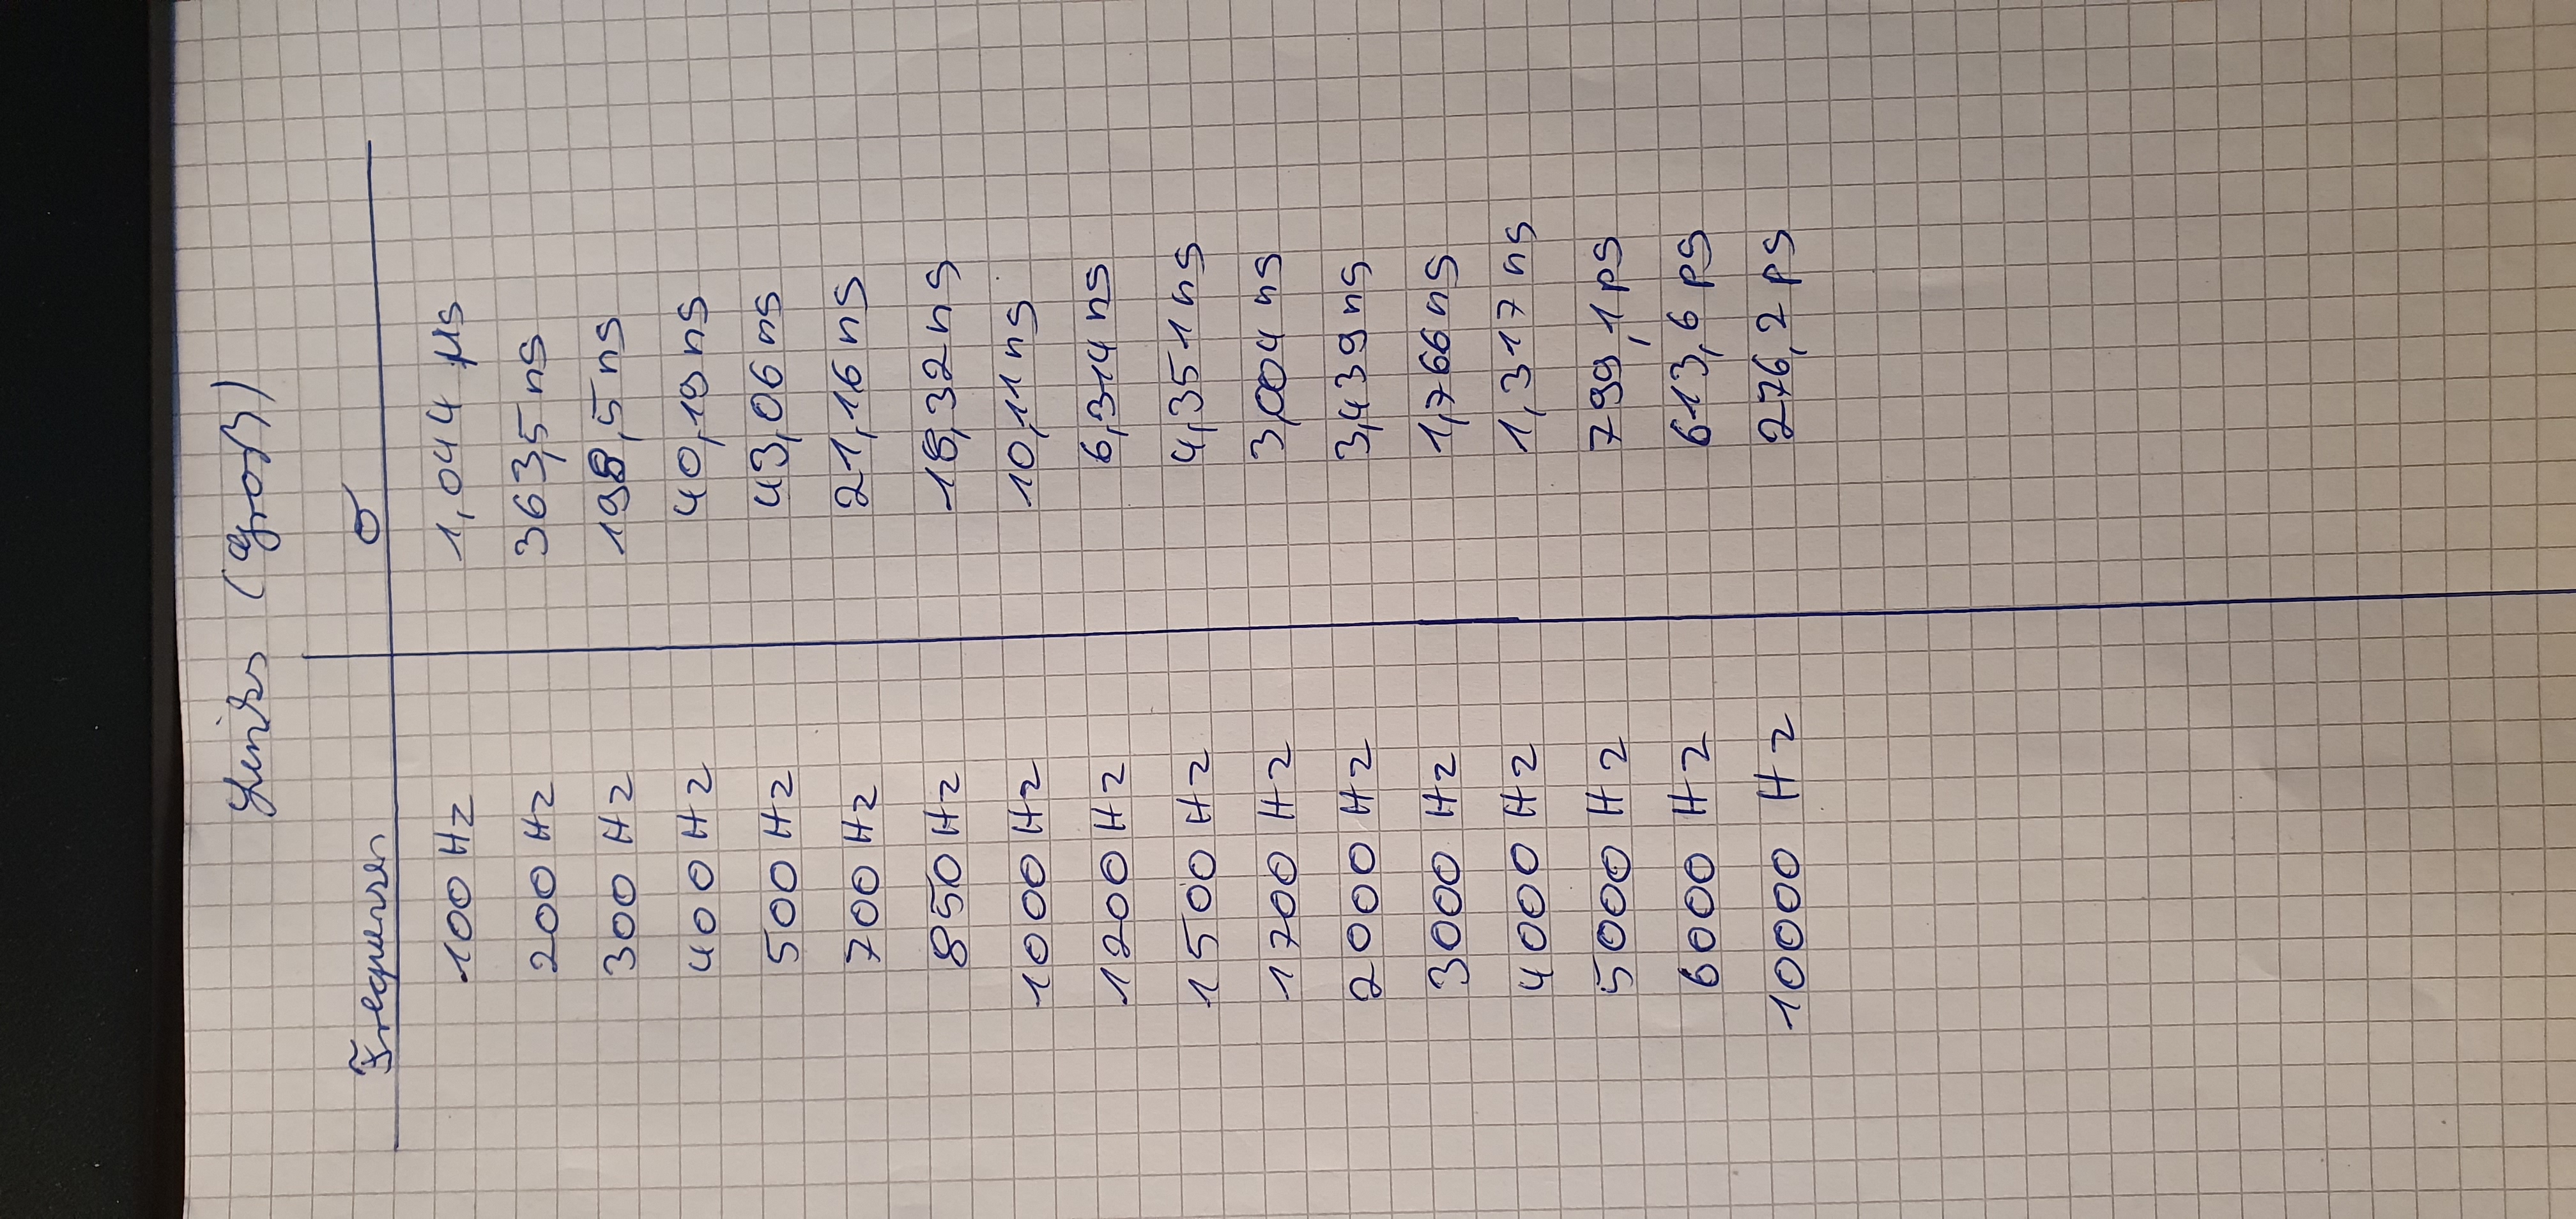 Links (Groß)
Frequenzen σ
100 Hz 1,044 µs
200 Hz 363,5 ns
300 Hz 198,5 ns
400 Hz 40,19 ns
500 Hz 43,06 ns
700 Hz 21,16 ns
850 Hz 18,32 ns
1000 Hz 10,11 ns
1200 Hz 6,314 ns
1500 Hz 4,351 ns
1700 Hz 3,004 ns
2000 Hz 3,439 ns
3000 Hz 1,766 ns
4000 Hz 1,317 ns
5000 Hz 799,1 ps
6000 Hz 613,6 ps
10000 Hz 276,2 ps